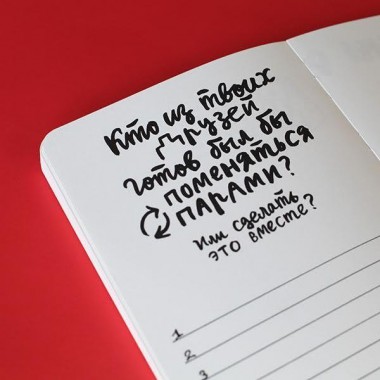 Кто из твоих
друзей
готов был бы
поменяться
парами?
Или сделать
это вместе?
1
2
3